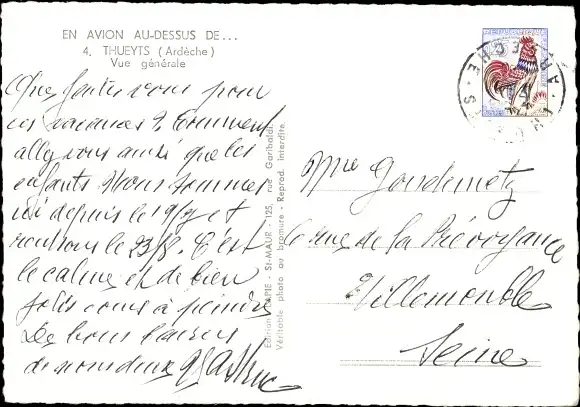 EN AVION AU-DESSUS DE...
4. THUEYTS (Ardèche)
Vue générale
Que faites vous pour
ces vacances ? Comment
allez vous ainsi que les
enfants. Nous sommes
ici depuis le 19/7 et
rentrons le 23/8. C'est
le calme et de bien
jolis coins à peindre
De bons baisers
de nous deux
Editions LAPIE - St-MAUR - 125, rue Garibaldi
Véritable photo au bromure - Reprod. interdite
Mme Goudemetz
rue de la Prévoyance
Villemomble
Seine
ARDECHE